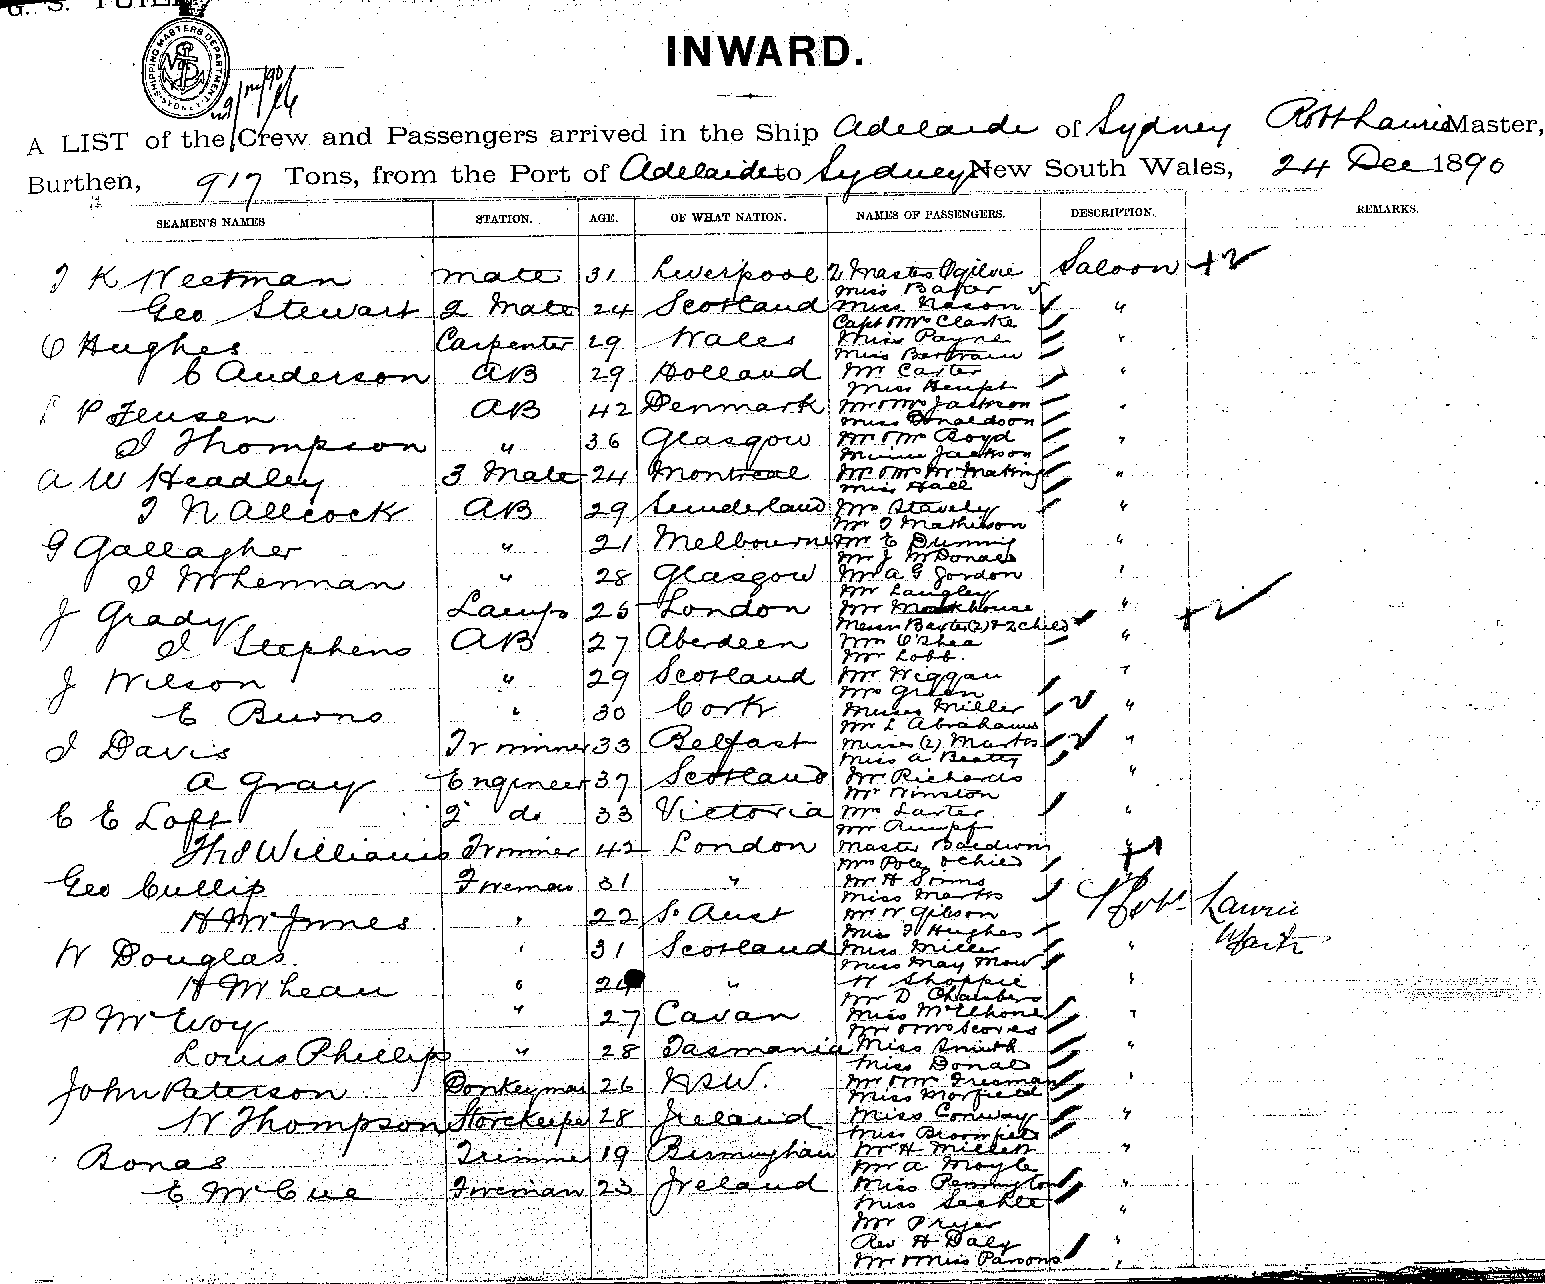 INWARD.
SHIPPING MASTERS DEPARTMENT
A LIST of the Crew and Passengers arrived in the Ship Adelaide of Sydney Robt Laurie Master,
Burthen, 917 Tons, from the Port of Adelaide to Sydney New South Wales, 24 Dec 1890
SEAMEN'S NAMES STATION. AGE. OF WHAT NATION. NAMES OF PASSENGERS. DESCRIPTION. REMARKS.
J K Weetman mate 31 Liverpool 2 Masters Ogilvie Saloon +2
Miss Baker
Geo Stewart 2 Mate 24 Scotland Miss Nason "
Capt & Mrs Clarke
C Hughes Carpenter 29 Wales Miss Payne "
Miss Bertram
C Anderson AB 29 Holland Mr Carter "
Miss Heupt
P Jensen AB 42 Denmark Mr & Mrs Jackson "
Miss Donaldson
J Thompson " 36 Glasgow Mr & Mrs Boyd "
Minnie Jackson
A W Headley 3 Mate 24 Montreal Mr & Mrs "
Miss Hall
J N Allcock AB 29 Sunderland Mrs Stavely "
Mr J Mathieson
G Gallagher " 21 Melbourne Mr E Dunning "
Mr J McDonald
J McLennan " 28 Glasgow Mr A G Gordon "
Mr Langley
J Grady Lamps 25 London Mr Monkhouse "
Misses Baxter (2) & 2 child
J Stephens AB 27 Aberdeen Mrs O'Shea "
Mr Lobb.
J Wilson " 29 Scotland Mr Wiggan "
Mrs Green
E Burns " 30 Cork Misses Miller "
Mr L Abrahams
J Davis Trimmer 33 Belfast Misses (2) Marks "
Miss A Beatty
A Gray Engineer 37 Scotland Mr Richards "
Mr Winston
C E Loft 2 do 33 Victoria Mrs Larter "
Mr Rumpf
Thos Williams Trimmer 42 London Master Baldwin "
Mrs Pole & child
Geo Cullip Fireman 31 " Mr H Simms
Miss Marks
H McJnnes " 22 S. Aust Mr W Gibson Robt Laurie
Miss J Hughes
W Douglas. " 31 Scotland Miss Miller " Master
Miss May Mow
H McLean " 26 " W Shoppie "
Mr D Chambers
P McVoy " 27 Cavan Miss McElhone "
Mr & Mrs Scoves
Louis Phillips " 28 Tasmania Miss Smith "
Miss Donald
John Paterson Donkeyman 26 NSW. Mr & Mrs Freeman "
Miss Morfield
W Thompson Storekeeper 28 Ireland Miss Conway "
Miss
Bonas Trimmer 19 Birmingham Mr H Millett "
Mr A Moyle
E McCue Fireman 23 Ireland Miss Pennington "
Miss
Mr Pryer "
Rev H Daly "
Mr & Miss Parsons "